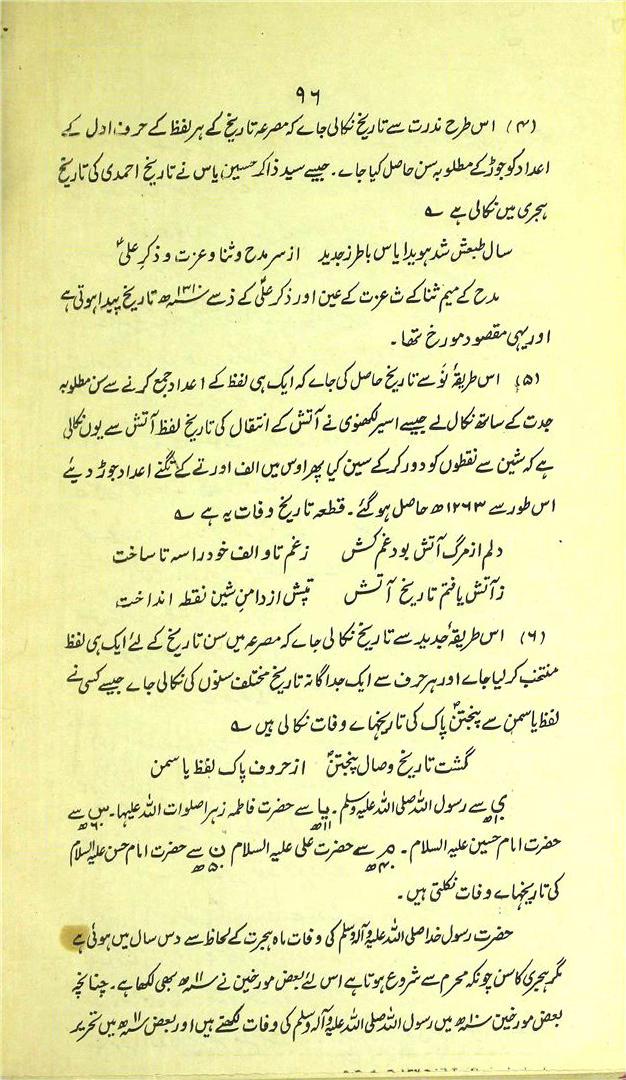 ۹۶
(۴) اس طرح ندرت سے تاریخ نکالی جاے کہ مصرعہ تاریخ کے ہر لفظ کے حرف اول کے
اعداد کو جوڑ کے مطلوبہ سن حاصل کیا جاے۔ جیسے سید ذاکر حسین یاس نے تاریخ احمدی کی تاریخ
ہجری میں نکالی ہے ؎
سال طبعش شد ہویدا یاس باطرز جدید از سر مدح و ثنا و عزت و ذکر علیؑ
مدح کے میم ثنا کے ث عزت کے عین اور ذکر علیؑ کے ذ سے ۱۳۱۰ھ تاریخ پیدا ہوتی ہے
اور یہی مقصود مورخ تھا۔
(۵) اس طریقۂ نَو سے تاریخ حاصل کی جاے کہ ایک ہی لفظ کے اعداد جمع کرنے سے سن مطلوبہ
جدت کے ساتھ نکال لے جیسے اسیر لکھنوی نے آتش کے انتقال کی تاریخ لفظ آتش سے یوں نکالی
ہے کہ شین سے نقطوں کو دور کر کے سین کیا پھر اوس میں الف اور تے کے تگنے اعداد جوڑ دیئے
اس طور سے ۱۲۶۳ھ حاصل ہو گئے۔ قطعہ تاریخ وفات یہ ہے ؎
دلم از مرگ آتش بود غم کش زغم تا و الف خود را سہ تا ساخت
ز آتش یافتم تاریخ آتش تپش از دامن شین نقطہ انداخت
(۶) اس طریقۂ جدید سے تاریخ نکالی جاے کہ مصرعہ میں سن تاریخ کے لئے ایک ہی لفظ
منتخب کر لیا جاے اور ہر حرف سے ایک جداگانہ تاریخ مختلف سنوں کی نکالی جاے جیسے کسی نے
لفظ یاسمن سے پنجتنؑ پاک کی تاریخہاے وفات نکالی ہیں ؎
گشت تاریخ وصال پنجتنؑ از حروف پاک لفظ یاسمن
ی ۱۰ھ سے رسول اللہ صلی اللہ علیہ وسلم۔ یا ۱۱ھ سے حضرت فاطمہ زہرا صلوات اللہ علیہا۔ س ۶۰ھ سے
حضرت امام حسین علیہ السلام۔ م ۴۰ھ سے حضرت علی علیہ السلام ن ۵۰ھ سے حضرت امام حسن علیہ السلام
کی تاریخہاے وفات نکلتی ہیں۔
حضرت رسول خدا صلی اللہ علیہ وآلہ وسلم کی وفات ماہ ہجرت کے لحاظ سے دس سال میں ہوئی ہے
مگر ہجری کا سن چونکہ محرم سے شروع ہوتا ہے اس لئے بعض مورخین نے ۱۱ھ بھی لکھا ہے۔ چنانچہ
بعض مورخین ۱۰ھ میں رسول اللہ صلی اللہ علیہ وآلہ وسلم کی وفات لکھتے ہیں اور بعض ۱۱ھ میں تحریر